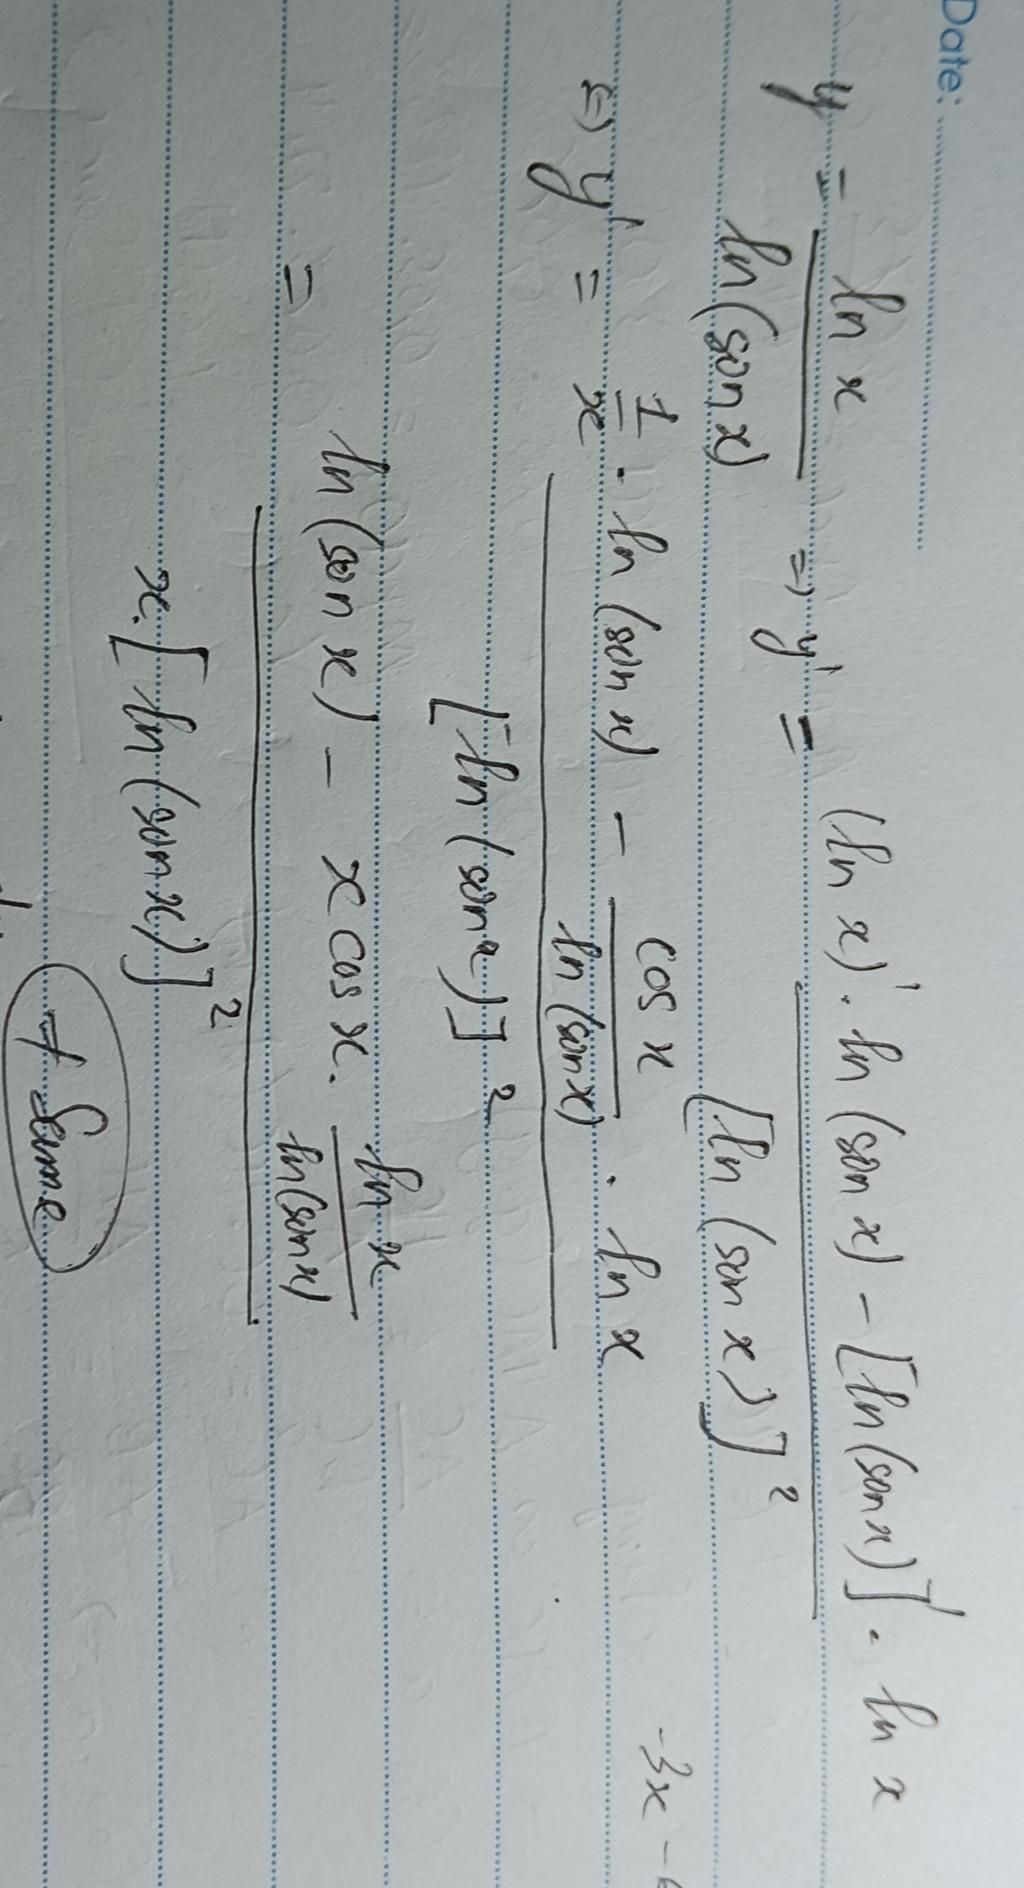 Date:
y = ln x / ln(sin x) => y' = (ln x)' . ln(sin x) - [ln(sin x)]' . ln x / [ln(sin x)]²
<=> y' = 1/x . ln(sin x) - cos x / ln(sin x) . ln x / [ln(sin x)]²
-3x -
= ln(sin x) - x cos x . ln x / ln(sin x) / x.[ln(sin x)]²